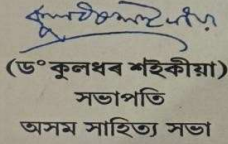 (ড° কুলধৰ শইকীয়া)
সভাপতি
অসম সাহিত্য সভা